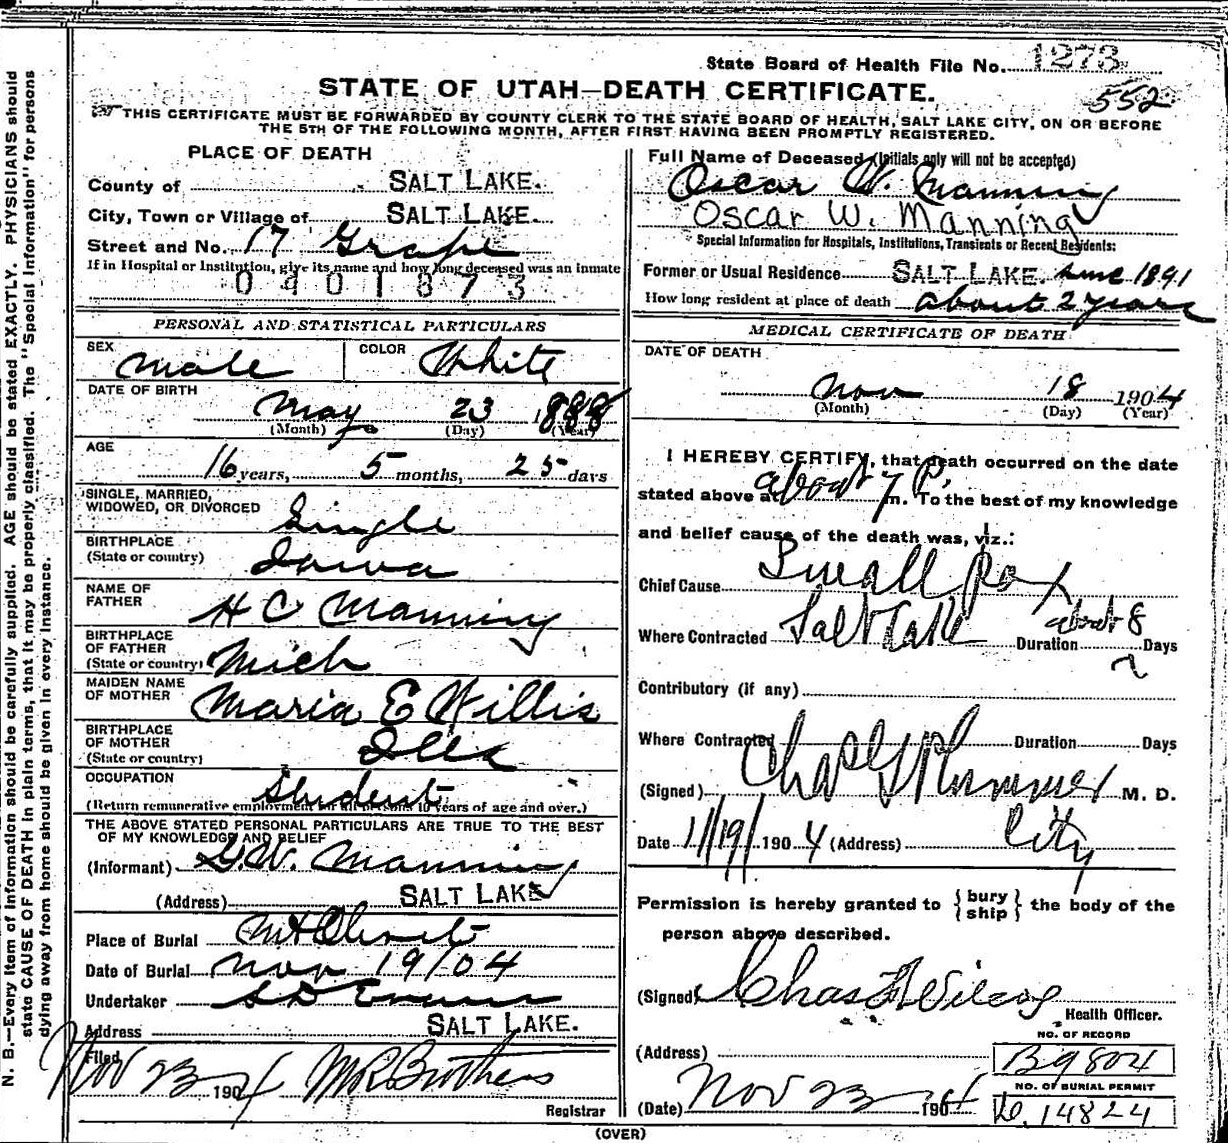 State Board of Health File No. 1273
552
STATE OF UTAH—DEATH CERTIFICATE.
THIS CERTIFICATE MUST BE FORWARDED BY COUNTY CLERK TO THE STATE BOARD OF HEALTH, SALT LAKE CITY, ON OR BEFORE
THE 5TH OF THE FOLLOWING MONTH, AFTER FIRST HAVING BEEN PROMPTLY REGISTERED.
PLACE OF DEATH
County of SALT LAKE.
City, Town or Village of SALT LAKE.
Street and No. 17 Grape
If in Hospital or Institution, give its name and how long deceased was an inmate
0401873
PERSONAL AND STATISTICAL PARTICULARS
SEX male COLOR White
DATE OF BIRTH
May 23 1888
(Month) (Day) (Year)
AGE
16 years, 5 months, 25 days
SINGLE, MARRIED,
WIDOWED, OR DIVORCED Single
BIRTHPLACE
(State or country) Iowa
NAME OF
FATHER H C Manning
BIRTHPLACE
OF FATHER
(State or country) Mich
MAIDEN NAME
OF MOTHER Maria E Willis
BIRTHPLACE
OF MOTHER
(State or country) Ills
OCCUPATION Student
(Return remunerative employment for all persons 10 years of age and over.)
THE ABOVE STATED PERSONAL PARTICULARS ARE TRUE TO THE BEST
OF MY KNOWLEDGE AND BELIEF
(Informant) G.W. Manning
(Address) SALT LAKE
Place of Burial Mt Olivet
Date of Burial Nov 19/04
Undertaker S D Evans
Address SALT LAKE.
Filed
Nov 23 1904 M R Brothers
Registrar
Full Name of Deceased (Initials only will not be accepted)
Oscar W. Manning
Oscar W. Manning
Special Information for Hospitals, Institutions, Transients or Recent Residents:
Former or Usual Residence SALT LAKE. since 1891
How long resident at place of death about 2 years
MEDICAL CERTIFICATE OF DEATH
DATE OF DEATH
Nov 18 1904
(Month) (Day) (Year)
I HEREBY CERTIFY, that death occurred on the date
stated above at about 7 P. m. To the best of my knowledge
and belief cause of the death was, viz.:
Chief Cause Small pox
Where Contracted Salt Lake Duration about 8 Days
Contributory (if any)
Where Contracted Duration Days
(Signed) Chas G Plummer M. D.
Date 11/19/1904 (Address) City
Permission is hereby granted to {bury ship} the body of the
person above described.
(Signed) Chas F Wilcox
Health Officer.
NO. OF RECORD
(Address) B 9804
NO. OF BURIAL PERMIT
(Date) Nov 23 1904 D. 14824
(OVER)
N. B.—Every item of information should be carefully supplied. AGE should be stated EXACTLY. PHYSICIANS should
state CAUSE OF DEATH in plain terms, that it may be properly classified. The "Special Information" for persons
dying away from home should be given in every instance.